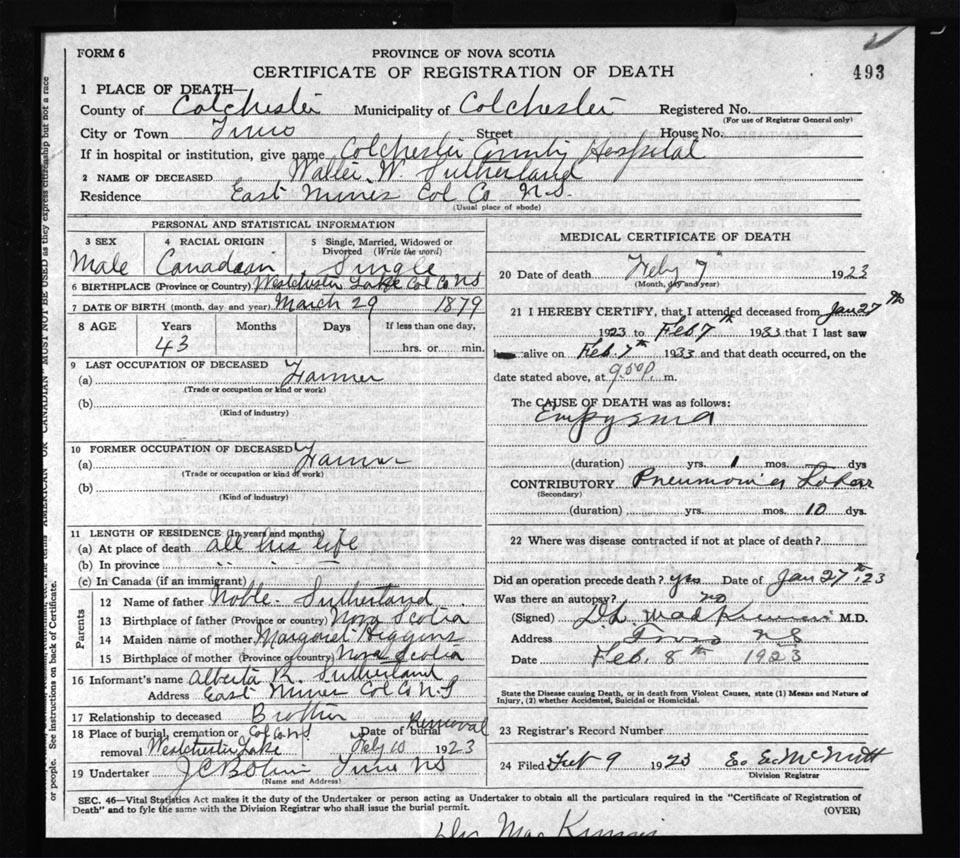 FORM 6
PROVINCE OF NOVA SCOTIA
CERTIFICATE OF REGISTRATION OF DEATH
493
1 PLACE OF DEATH—
County of Colchester Municipality of Colchester Registered No.
(For use of Registrar General only)
City or Town Truro Street House No.
If in hospital or institution, give name Colchester County Hospital
2 NAME OF DECEASED Walter W. Sutherland
Residence East Mines Col Co N.S.
(Usual place of abode)
PERSONAL AND STATISTICAL INFORMATION
3 SEX 4 RACIAL ORIGIN 5 Single, Married, Widowed or Divorced (Write the word)
Male Canadian Single
6 BIRTHPLACE (Province or Country) Westchester Lake Col Co NS
7 DATE OF BIRTH (month, day and year) March 29 1879
8 AGE Years Months Days If less than one day,
43 hrs. or min.
9 LAST OCCUPATION OF DECEASED
(a) Farmer
(Trade or occupation or kind or work)
(b)
(Kind of industry)
10 FORMER OCCUPATION OF DECEASED
(a) Farmer
(Trade or occupation or kind of work)
(b)
(Kind of industry)
11 LENGTH OF RESIDENCE (In years and months)
(a) At place of death all his life
(b) In province " " "
(c) In Canada (if an immigrant)
Parents
12 Name of father Noble Sutherland
13 Birthplace of father (Province or country) Nova Scotia
14 Maiden name of mother Margaret Higgins
15 Birthplace of mother (Province or country) Nova Scotia
16 Informant's name Alberta R. Sutherland
Address East Mines Col Co N.S
17 Relationship to deceased Brother
18 Place of burial, cremation or removal Westchester Lake Col Co NS Date of burial Removal Feby 10 1923
19 Undertaker Truro NS
(Name and Address)
MEDICAL CERTIFICATE OF DEATH
20 Date of death Feby 7" 1923
(Month, day and year)
21 I HEREBY CERTIFY, that I attended deceased from Jan 27th
1923 to Feb 7th 1933 that I last saw
alive on Feb. 7th 1933 and that death occurred, on the
date stated above, at m.
The CAUSE OF DEATH was as follows:
Empysma
(duration) yrs. 1 mos. dys
CONTRIBUTORY Pneumonia Lobar
(Secondary)
(duration) yrs. mos. 10 dys.
22 Where was disease contracted if not at place of death?
Did an operation precede death? yes Date of Jan 27th 23
Was there an autopsy? no
(Signed) M.D.
Address Truro NS
Date Feb. 8th 1923
State the Disease causing Death, or in death from Violent Causes, state (1) Means and Nature of
Injury, (2) whether Accidental, Suicidal or Homicidal.
23 Registrar's Record Number
24 Filed Feb 9 1923 E. E. McNutt
Division Registrar
SEC. 46—Vital Statistics Act makes it the duty of the Undertaker or person acting as Undertaker to obtain all the particulars required in the "Certificate of Registration of
Death" and to fyle the same with the Division Registrar who shall issue the burial permit.
(OVER)